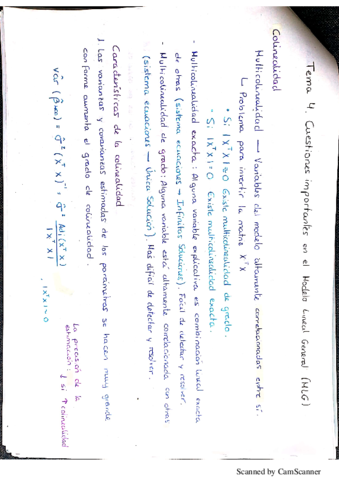 Tema 4. Cuestiones importantes en el Modelo Lineal General (MLG)
Colinealidad
Multicolinealidad → Variables del modelo altamente correlacionadas entre sí.
↳ Problema para invertir la matriz X'X
• Si |X'X| ≃ 0 Existe multicolinealidad de grado.
• Si |X'X| = 0 Existe multicolinealidad exacta.
- Multicolinealidad exacta: Alguna variable explicativa es combinación lineal exacta
de otras (sistema ecuaciones → Infinitas soluciones). Fácil de detectar y resolver.
- Multicolinealidad de grado: Alguna variable está altamente correlacionada con otras
(sistema ecuaciones → Única solución). Más difícil de detectar y resolver.
Características de la colinealidad
1. Las varianzas y covarianzas estimadas de los parámetros se hacen muy grande
conforme aumenta el grado de colinealidad.
var (β̂MCO) = σ̂² (X'X)⁻¹ = σ̂² Adj (X'X) / |X'X|
· |X'X| ≃ 0
La precisión de la
estimación: ↓ si ↑ colinealidad
Scanned by CamScanner